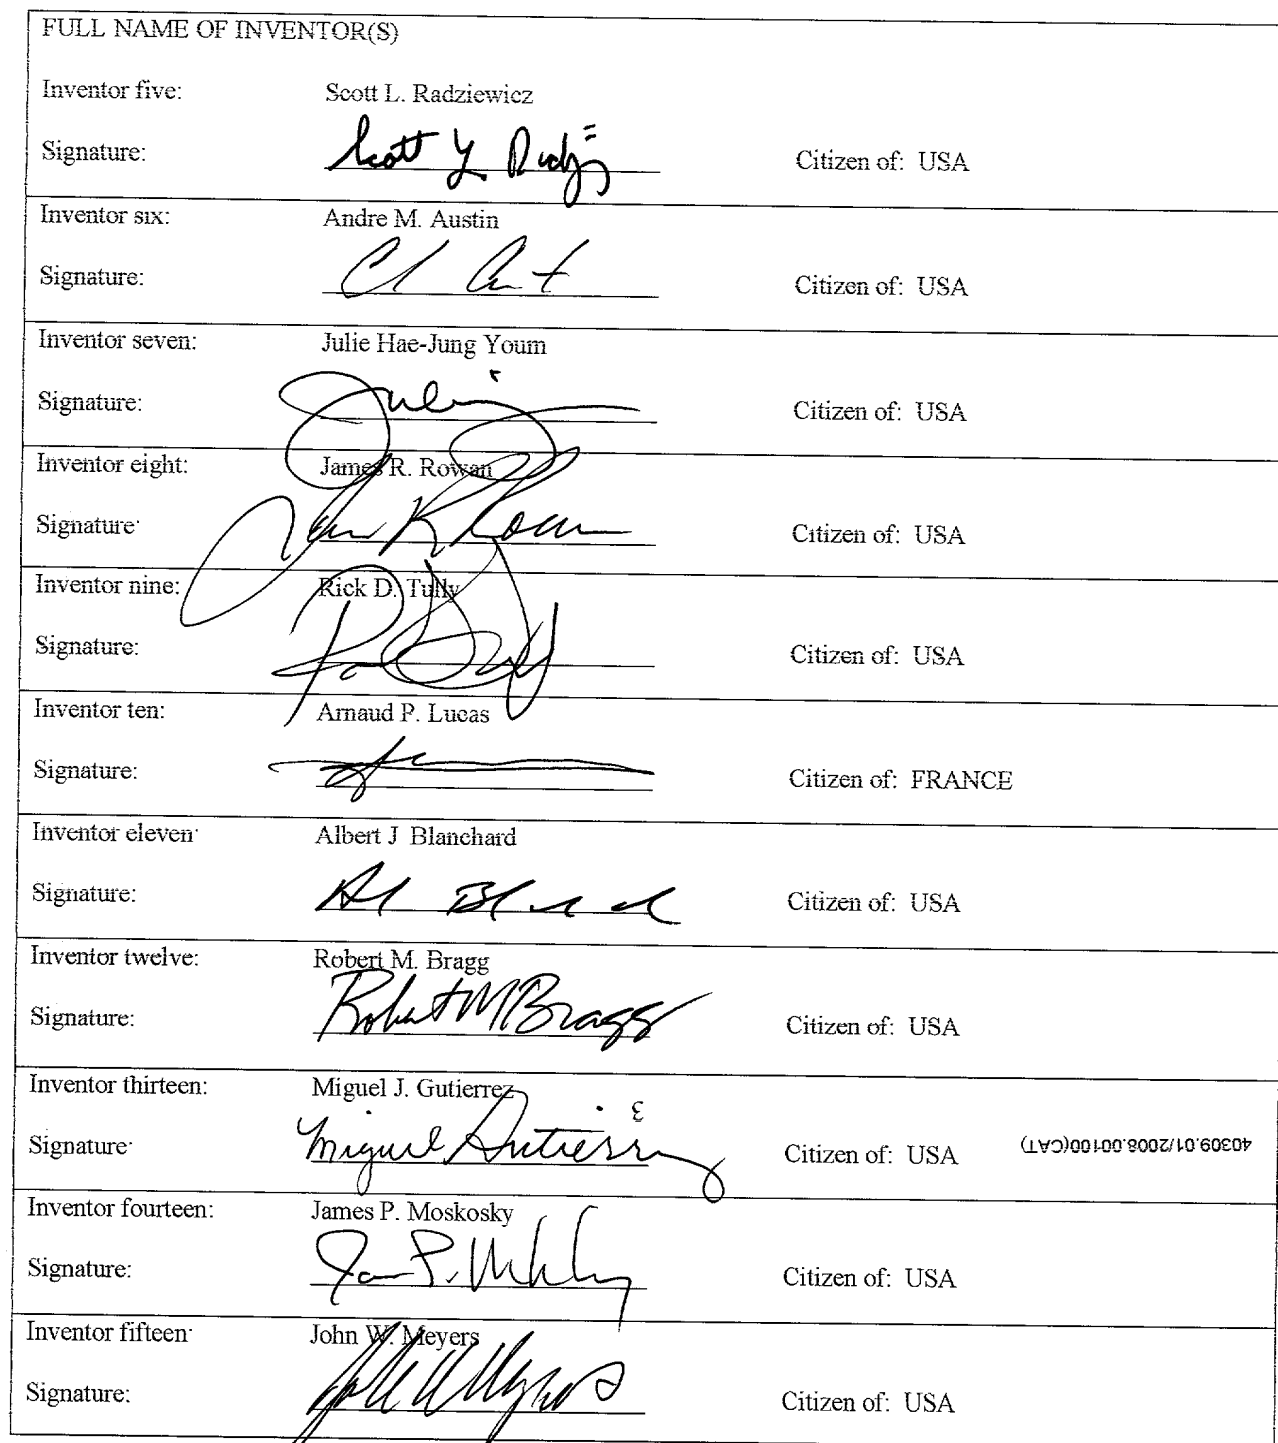 FULL NAME OF INVENTOR(S)
Inventor five: Scott L. Radziewicz
Signature: Scott L Citizen of: USA
Inventor six: Andre M. Austin
Signature: Citizen of: USA
Inventor seven: Julie Hae-Jung Youm
Signature: Julie Citizen of: USA
Inventor eight: James R. Rowan
Signature: Citizen of: USA
Inventor nine: Rick D. Tully
Signature: Citizen of: USA
Inventor ten: Arnaud P. Lucas
Signature: Citizen of: FRANCE
Inventor eleven: Albert J Blanchard
Signature: Al Citizen of: USA
Inventor twelve: Robert M. Bragg
Signature: Robert M Bragg Citizen of: USA
Inventor thirteen: Miguel J. Gutierrez
3
Signature: Miguel Gutierrez Citizen of: USA 40309.01/2008.00100(CAT)
Inventor fourteen: James P. Moskosky
Signature: Citizen of: USA
Inventor fifteen: John W. Meyers
Signature: Citizen of: USA